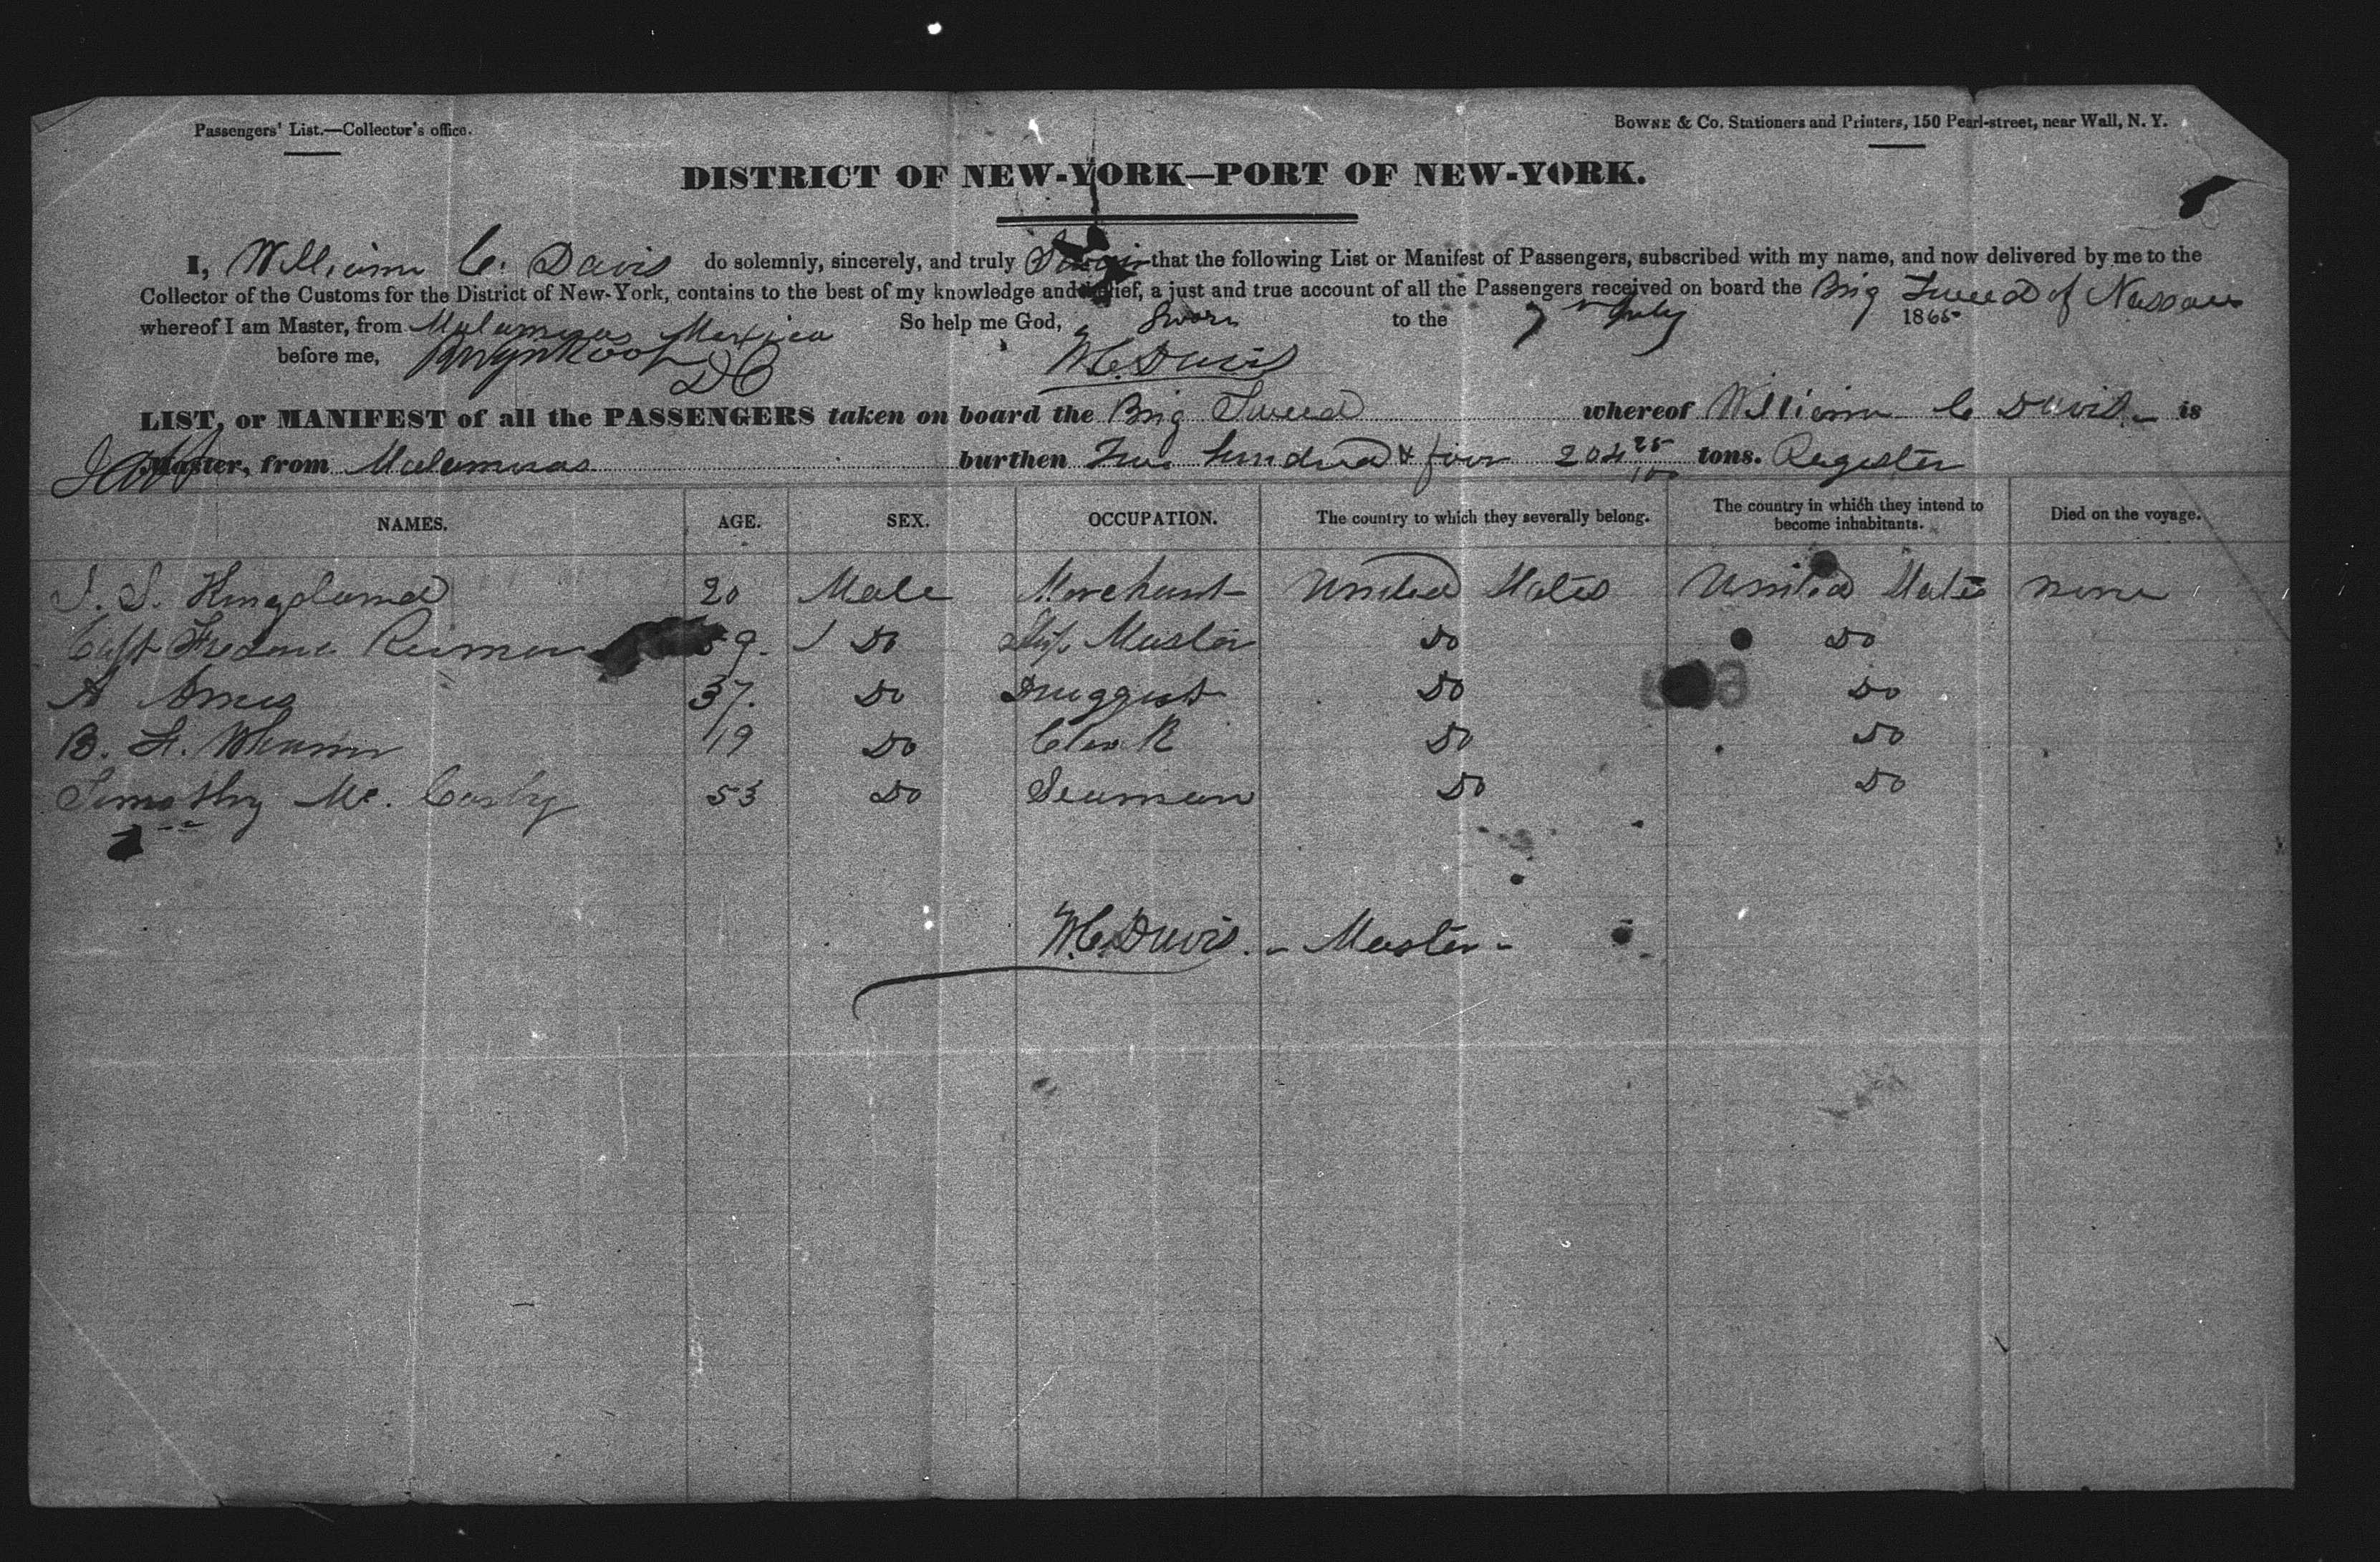 Passengers' List.—Collector's office.
BOWNE & Co. Stationers and Printers, 150 Pearl-street, near Wall, N. Y.
DISTRICT OF NEW-YORK—PORT OF NEW-YORK.
I, William C. Davis do solemnly, sincerely, and truly Swear that the following List or Manifest of Passengers, subscribed with my name, and now delivered by me to the
Collector of the Customs for the District of New-York, contains to the best of my knowledge and belief, a just and true account of all the Passengers received on board the Brig Tweed of Nassau
whereof I am Master, from Matamoras Mexico So help me God, Sworn to the 7th July 1865
before me, DC W.C. Davis
LIST, or MANIFEST of all the PASSENGERS taken on board the Brig Tweed whereof William C Davis is
Master, from Matamoras burthen Two hundred & four 204 25/100 tons. Register
NAMES. AGE. SEX. OCCUPATION. The country to which they severally belong. The country in which they intend to become inhabitants. Died on the voyage.
20 Male Merchant United States United States none
Capt 9. Do Ship Master Do Do
A Ames 37. Do Druggist Do Do
B. 19 Do Clerk Do Do
Timothy Mc. 53 Do Seaman Do Do
W.C. Davis. - Master -